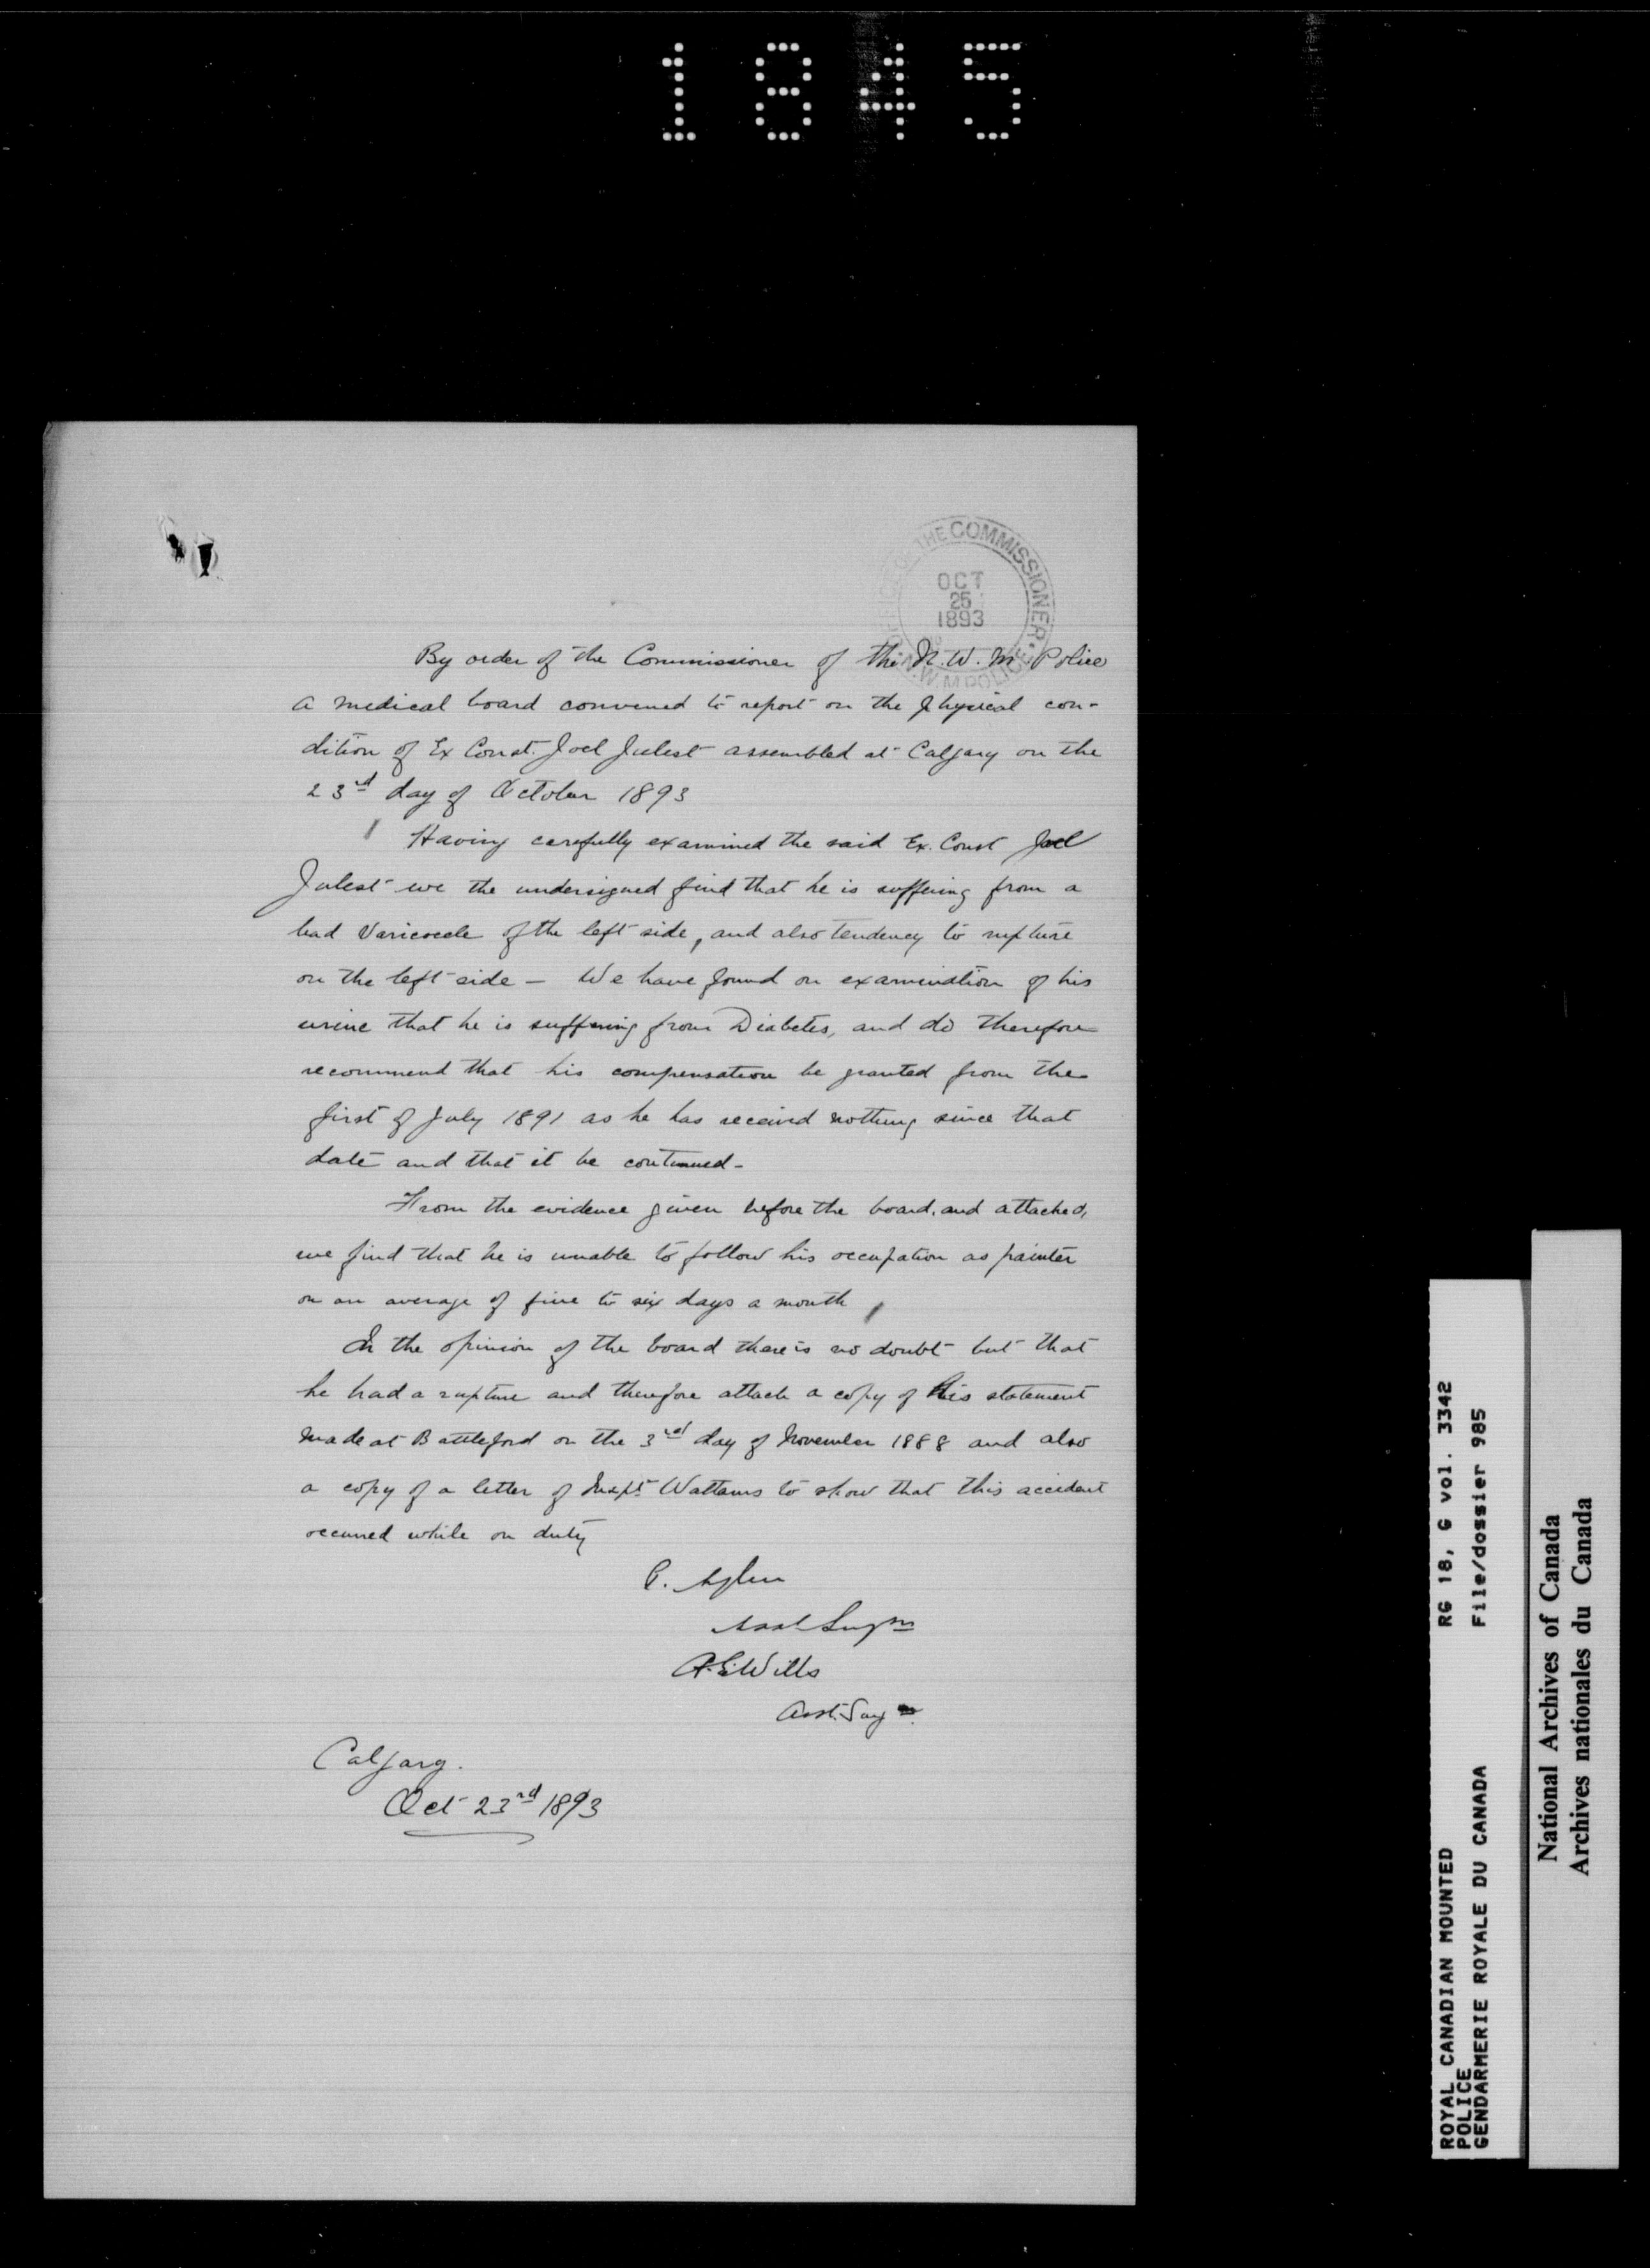 1845
OFFICE OF THE COMMISSIONER
OCT
25
1893
N.W.M. POLICE
By order of the Commissioner of the N. W. M. Police
a medical board convened to report on the physical con-
dition of Ex Const. Joel Julest assembled at Calgary on the
23rd day of October 1893
Having carefully examined the said Ex. Const Joel
Julest we the undersigned find that he is suffering from a
bad Varicocele of the left side, and also tendency to rupture
on the left side — We have found on examination of his
urine that he is suffering from Diabetes, and do therefore
recommend that his compensation be granted from the
first of July 1891 as he has received nothing since that
date and that it be continued -
From the evidence given before the board, and attached,
we find that he is unable to follow his occupation as painter
on an average of five to six days a month
In the opinion of the board there is no doubt but that
he had a rupture and therefore attach a copy of his statement
made at Battleford on the 3rd day of November 1888 and also
a copy of a letter of Inspt Wattams to show that this accident
occurred while on duty
Asst Surgn
A.E. Wills
Asst. Surgn.
Calgary.
Oct 23rd 1893
ROYAL CANADIAN MOUNTED RG 18, G vol. 3342
POLICE
GENDARMERIE ROYALE DU CANADA File/dossier 985
National Archives of Canada
Archives nationales du Canada